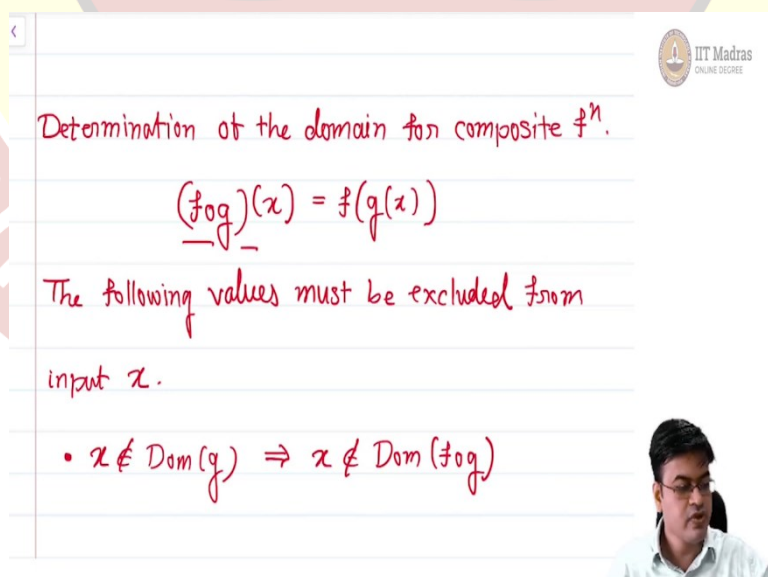 IIT Madras
ONLINE DEGREE
Determination of the domain for composite fⁿ.
(fog)(x) = f(g(x))
The following values must be excluded from
input x.
• x ∉ Dom(g) ⇒ x ∉ Dom(fog)